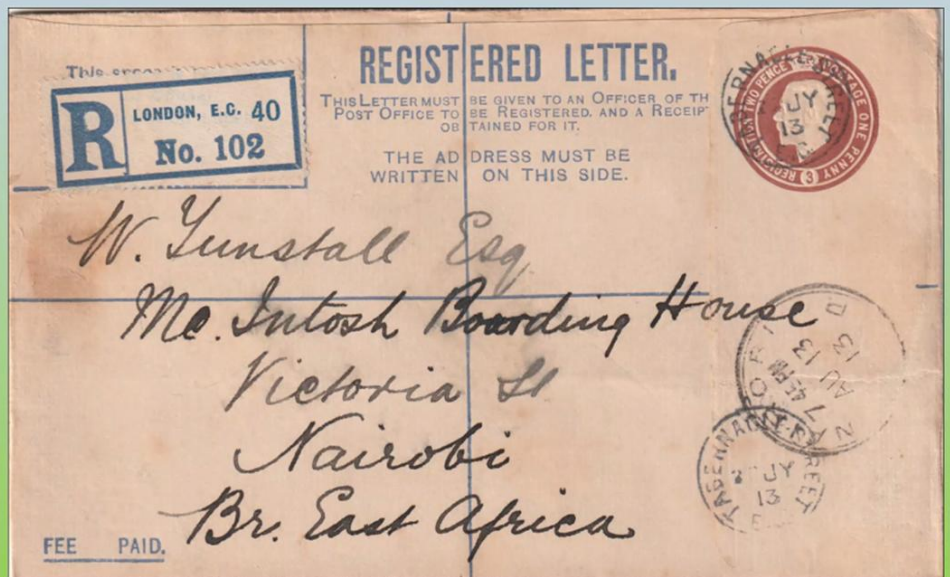 REGISTERED LETTER.
THIS LETTER MUST BE GIVEN TO AN OFFICER OF TH
POST OFFICE TO BE REGISTERED, AND A RECEIPT
OBTAINED FOR IT.
THE ADDRESS MUST BE
WRITTEN ON THIS SIDE.
This
R
LONDON, E.C. 40
No. 102
REGISTRATION TWO PENCE
POSTAGE ONE PENNY
3
TABERNACLE STREET
JY
13
W. Tunstall Esq
Mc. Intosh Boarding House
Victoria St
Nairobi
Br. East Africa
NAIROBI
7 45 PM
AU 13
13
D
TABERNACLE STREET
JY
13
FEE PAID.